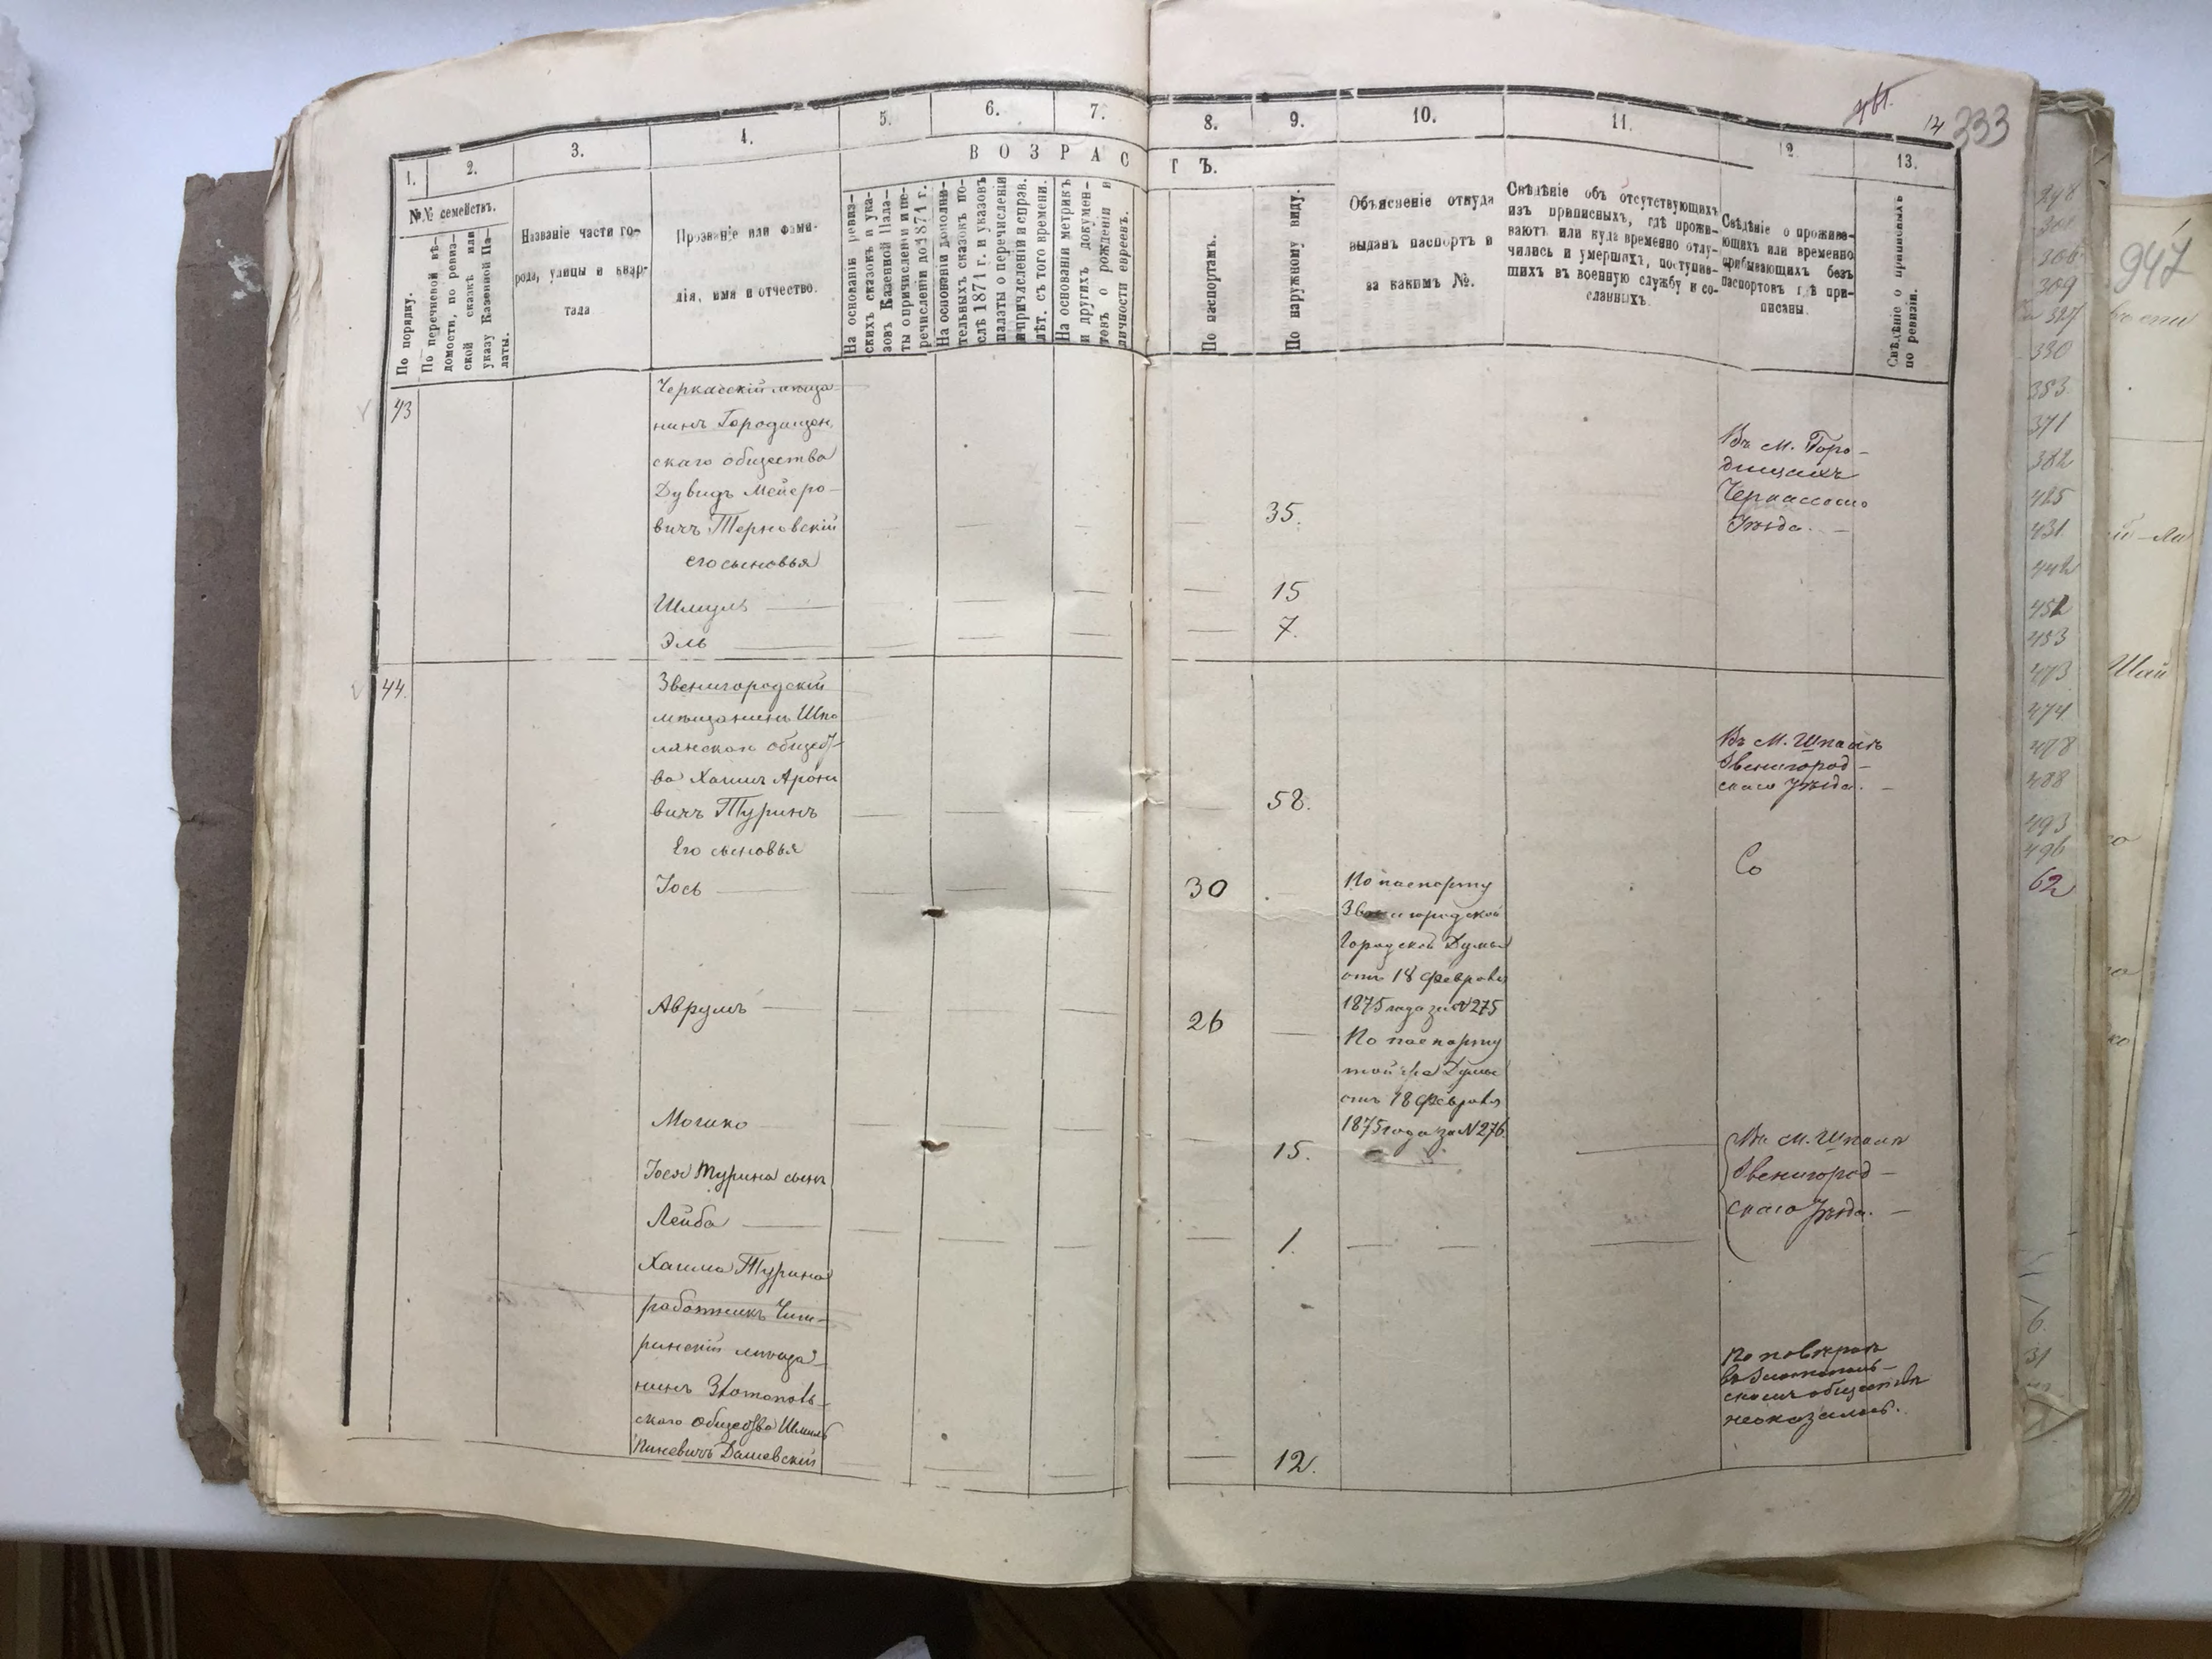 1.
2.
3.
4.
5.
6.
7.
8.
9.
10.
11.
12
13.
14
333
В О З Р А С
Т Ъ.
№№ семействъ.
По порядку.
По перечневой вѣ-
домости, по ревиз-
ской сказкѣ или
указу Казенной Па-
латы.
Названіе части го-
рода, улицы и квар-
тала
Прозваніе или фами-
лія, имя и отчество.
На основаніи ревиз-
скихъ сказокъ и ука-
зовъ Казенной Пала-
ты о причисленіи и пе-
речисленіи до 1871 г.
На основаніи дополни-
тельныхъ сказокъ по-
слѣ 1871 г. и указовъ
палаты о перечисленіи
и причисленіи и справ.
лѣт. съ того времени.
На основаніи метрикъ
и другихъ докумен-
товъ о рожденіи и
личности евреевъ.
По паспортамъ.
По наружному виду.
Объясненіе откуда
выданъ паспортъ и
за какимъ №.
Свѣдѣніе объ отсутствующихъ
изъ приписныхъ, гдѣ прожи-
ваютъ или куда временно отлу-
чились и умершахъ, поступив-
шихъ въ военную службу и со-
сланныхъ.
Свѣдѣніе о прожива-
ющихъ или временно
пребывающихъ безъ
паспортовъ гдѣ при-
писаны.
Свѣдѣніе о приписныхъ
по ревизіи.
43
Черкасскій мѣща-
нинъ Городищен.
скаго общества
Дувидъ Мейеро-
вичъ Терновскій
35.
его сыновья
Шмуль
15
Эль
7.
Въ м. Горо-
дищахъ
Черкасскаго
Уѣзда.
44.
Звенигородскій
мѣщанинъ Шпо
лянскаго общест-
ва Хаимъ Ароно
вичъ Туринъ
58.
Въ м. Шполѣ
Звенигород-
скаго Уѣзда.
Его сыновья
Со
Іось
30
По паспорту
Звенигородской
Городской Думы
отъ 18 февраля
1875 года за №275
Аврумъ
26
По паспорту
той же Думы
отъ 18 февраля
1875 года за №276.
Мошко
15.
Іося Турина сынъ
Лейба
1.
Въ м. Шполѣ
Звенигород-
скаго Уѣзда.
Хаима Турина
работникъ Чиги-
ринскій мѣща-
нинъ Златополь-
скаго общества Шмиль
Пиневичъ Дашевскій
12.
По повѣркѣ
въ Златополь-
скомъ обществѣ
не оказалось.
947
298
309
327
330
353
371
382
425
431
442
452
453
473
474
478
488
493
496
62
6.
31
Шай